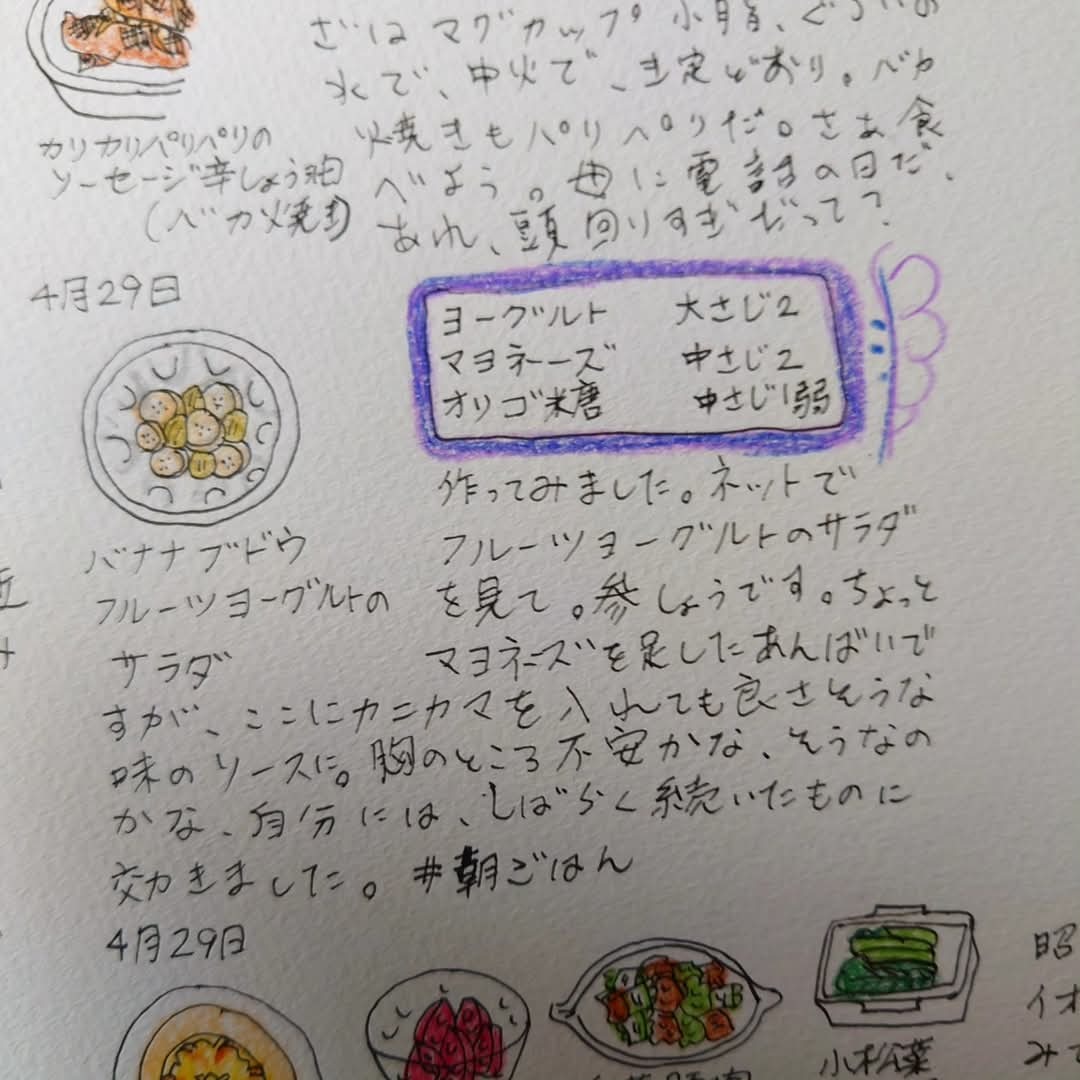 ざいはマグカップ小脂、ぐらいの
水で、中火で、き定どおり。バカ
焼きもパリパリだ。さぁ食
べよう。母に電話の日だ、
あれ、頭回りすぎだって?
カリカリパリパリの
ソーセージ辛しょう油
(バカ焼き)
4月29日
ヨーグルト 大さじ2
マヨネーズ 中さじ2
オリゴ糖 中さじ1弱
バナナブドウ
フルーツヨーグルトの
サラダ
作ってみました。ネットで
フルーツヨーグルトのサラダ
を見て。参しょうです。ちょっと
マヨネーズを足したあんばいで
すが、ここにカニカマを入れても良さそうな
味のソースに。胸のところ不安かな、そうなの
かな、自分には、しばらく続いたものに
効きました。#朝ごはん
4月29日
小松菜
昭
イオ
みて